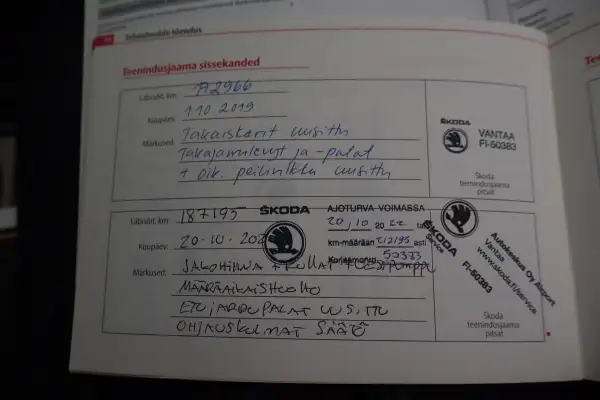 Tehnohoolde tõendus
Teenindusjaama sissekanded
Läbisõit, km:
Kuupäev: 1.10.2019
Märkused: Takaiskarit uusittu
Takajarrulevyt ja -palat
+ oik. peilinkku uusittu
ŠKODA
VANTAA
FI-50383
Skoda
teenindusjaama
pitsat
Läbisõit, km: 187195
Kuupäev: 20.10.202
Märkused: JAKOHIHNA + RULLAT + VESIPUMPPU
MÄÄRÄAIKAISHUOLTO
ETUJARRUPALAT UUSITTU
OHJAUSKULMAT SÄÄTÖ
ŠKODA
AJOTURVA VOIMASSA
20,10 20 22
km-määrään 212195 asti
Korjaamonro 50383
ŠKODA
Service
Autokeskus Oy Airport
Vantaa
www.skoda.fi/service
FI-50383
Skoda
teenindusjaama
pitsat